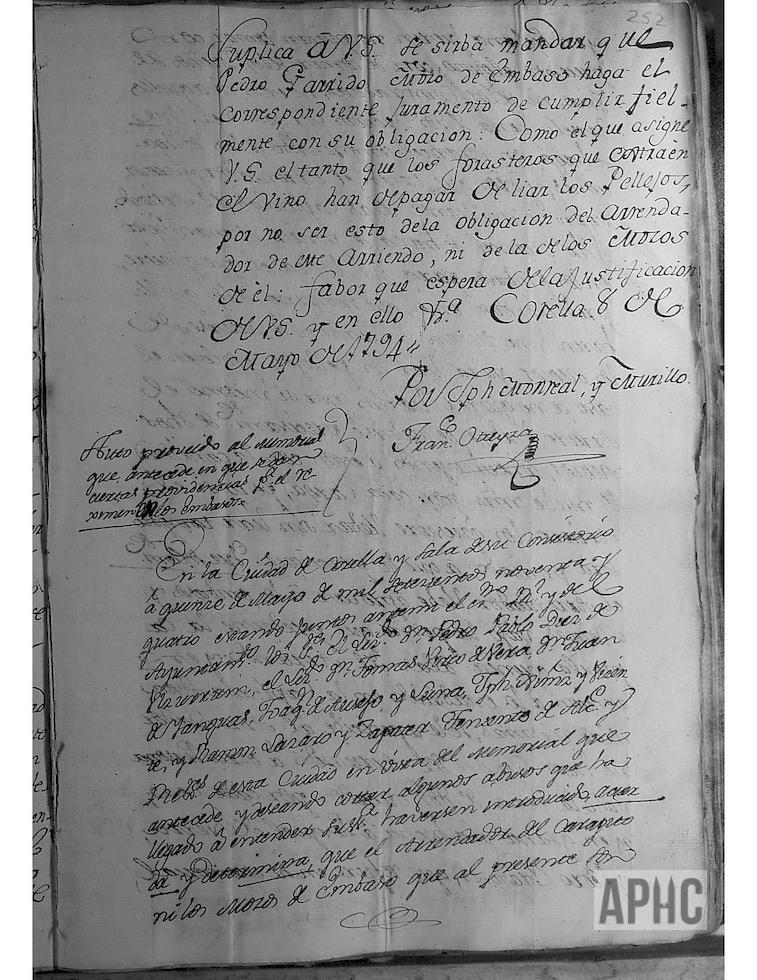 252
Suplica â V.S. se sirba mandar que
Pedro Garrido Mozo de Embaso haga el
correspondiente juramento de cumplir fiel-
mente con su obligacion: Como el que asigne
V.S. el tanto que los forasteros que extraèn
el Vino han de pagar de liar los Pellejos,
por no ser esto de la obligacion del Arrenda-
dor de este Arriendo, ni de la de los Mozos
de èl: fabor que espera de la Justificacion
de V.S. y en ello Rª Corella 8 de
Mayo de 1794
Por Jph Monreal, y Murillo.
Franco Oteyza
Auto proveido al memorial
que antecede en que se dan
ciertas providencias pª el re
ximen de los Embases
En la Ciudad de Corella y Sala de su Consistorio
â quinze de Mayo de mil setezientos noventa y
quatro estando juntos antemi el esno Rl y del
Ayuntamto los Sres el Lizdo Dn Pedro Pablo Diez de
Ulzurrun, el Lizdo Dn Tomas Virto de Vera, Dn Juan
de Yanguas, Joaqn de Ausejo y Luna, Jph Ximz y
te, y Ramon Lazaro y Zapater Teniente de Alce y
Rexres de esta Ciudad en vista del Memorial que
antecede y deseando cortar algunos abusos que ha
llegado â entender su Sª haversen introducido, acuer
da y determina, que el Arrendador del Carapito
ni los Mozos de Embaso que al presente son
APHC